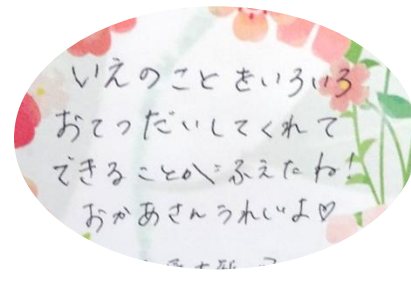 いえのことをいろいろ
おてつだいしてくれて
できることがふえたね!
おかあさんうれしいよ♡